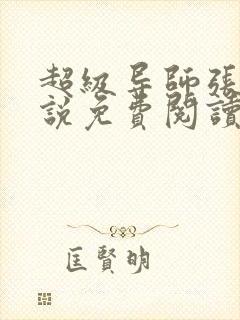 超級导師張
說免費閱讀
匡賢明